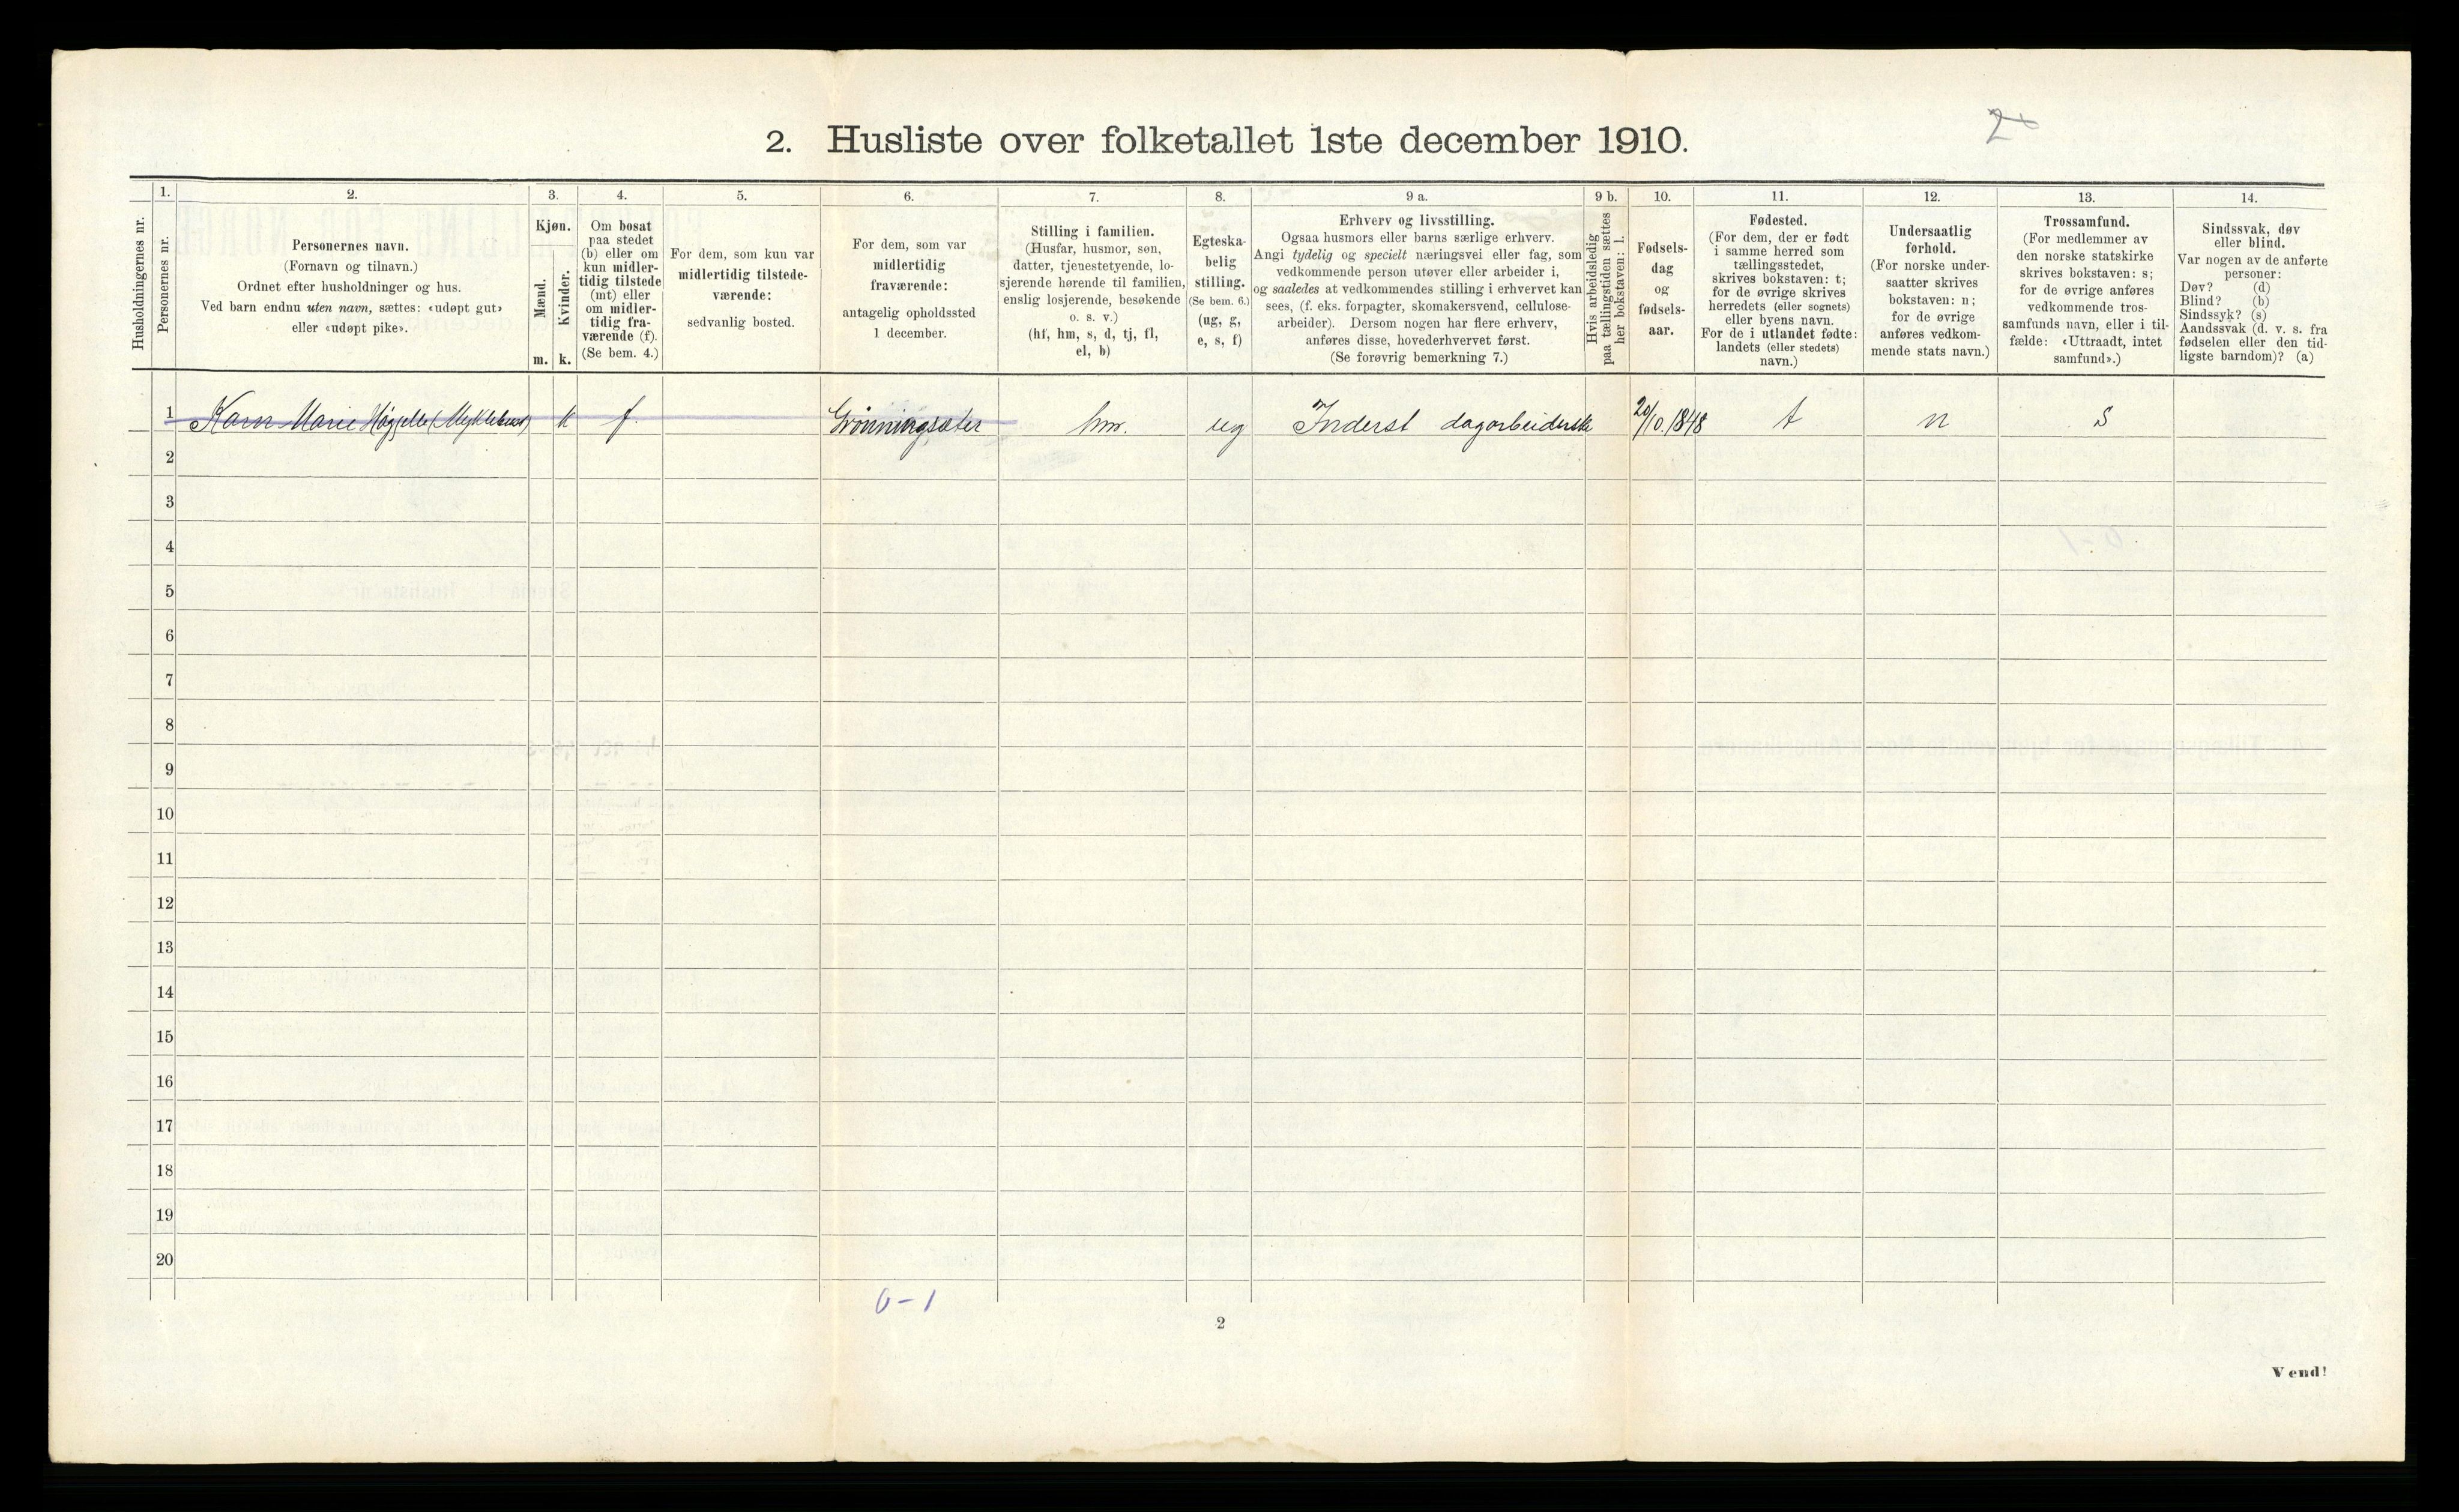 2. Husliste over folketallet 1ste december 1910.
Husholdningernes nr.
1.
Personernes nr.
2.
Personernes navn.
(Fornavn og tilnavn.)
Ordnet efter husholdninger og hus.
Ved barn endnu uten navn, sættes: «udøpt gut»
eller «udøpt pike».
3.
Kjøn.
Mænd.
Kvinder.
m. k.
4.
Om bosat
paa stedet
(b) eller om
kun midler-
tidig tilstede
(mt) eller
om midler-
tidig fra-
værende (f).
(Se bem. 4.)
5.
For dem, som kun var
midlertidig tilstede-
værende:
sedvanlig bosted.
6.
For dem, som var
midlertidig
fraværende:
antagelig opholdssted
1 december.
7.
Stilling i familien.
(Husfar, husmor, søn,
datter, tjenestetyende, lo-
sjerende hørende til familien,
enslig losjerende, besøkende
o. s. v.)
(hf, hm, s, d, tj, fl,
el, b)
8.
Egteska-
belig
stilling.
(Se bem. 6.)
(ug, g,
e, s, f)
9 a.
Erhverv og livsstilling.
Ogsaa husmors eller barns særlige erhverv.
Angi tydelig og specielt næringsvei eller fag, som
vedkommende person utøver eller arbeider i,
og saaledes at vedkommendes stilling i erhvervet kan
sees, (f. eks. forpagter, skomakersvend, cellulose-
arbeider). Dersom nogen har flere erhverv,
anføres disse, hovederhvervet først.
(Se forøvrig bemerkning 7.)
9 b.
Hvis arbeidsledig
paa tællingstiden sættes
her bokstaven: l.
10.
Fødsels-
dag
og
fødsels-
aar.
11.
Fødested.
(For dem, der er født
i samme herred som
tællingsstedet,
skrives bokstaven: t;
for de øvrige skrives
herredets (eller sognets)
eller byens navn.
For de i utlandet fødte:
landets (eller stedets)
navn.)
12.
Undersaatlig
forhold.
(For norske under-
saatter skrives
bokstaven: n;
for de øvrige
anføres vedkom-
mende stats navn.)
13.
Trossamfund.
(For medlemmer av
den norske statskirke
skrives bokstaven: s;
for de øvrige anføres
vedkommende tros-
samfunds navn, eller i til-
fælde: «Uttraadt, intet
samfund».)
14.
Sindssvak, døv
eller blind.
Var nogen av de anførte
personer:
Døv? (d)
Blind? (b)
Sindssyk? (s)
Aandssvak (d. v. s. fra
fødselen eller den tid-
ligste barndom)? (a)
1 Karn Marie (Myklebust) k f. Grönningsæter hm. ug Inderst dagarbeiderske 20/10.1848 t n s
2
3
4
5
6
7
8
9
10
11
12
13
14
15
16
17
18
19
20
0-1
2
Vend!